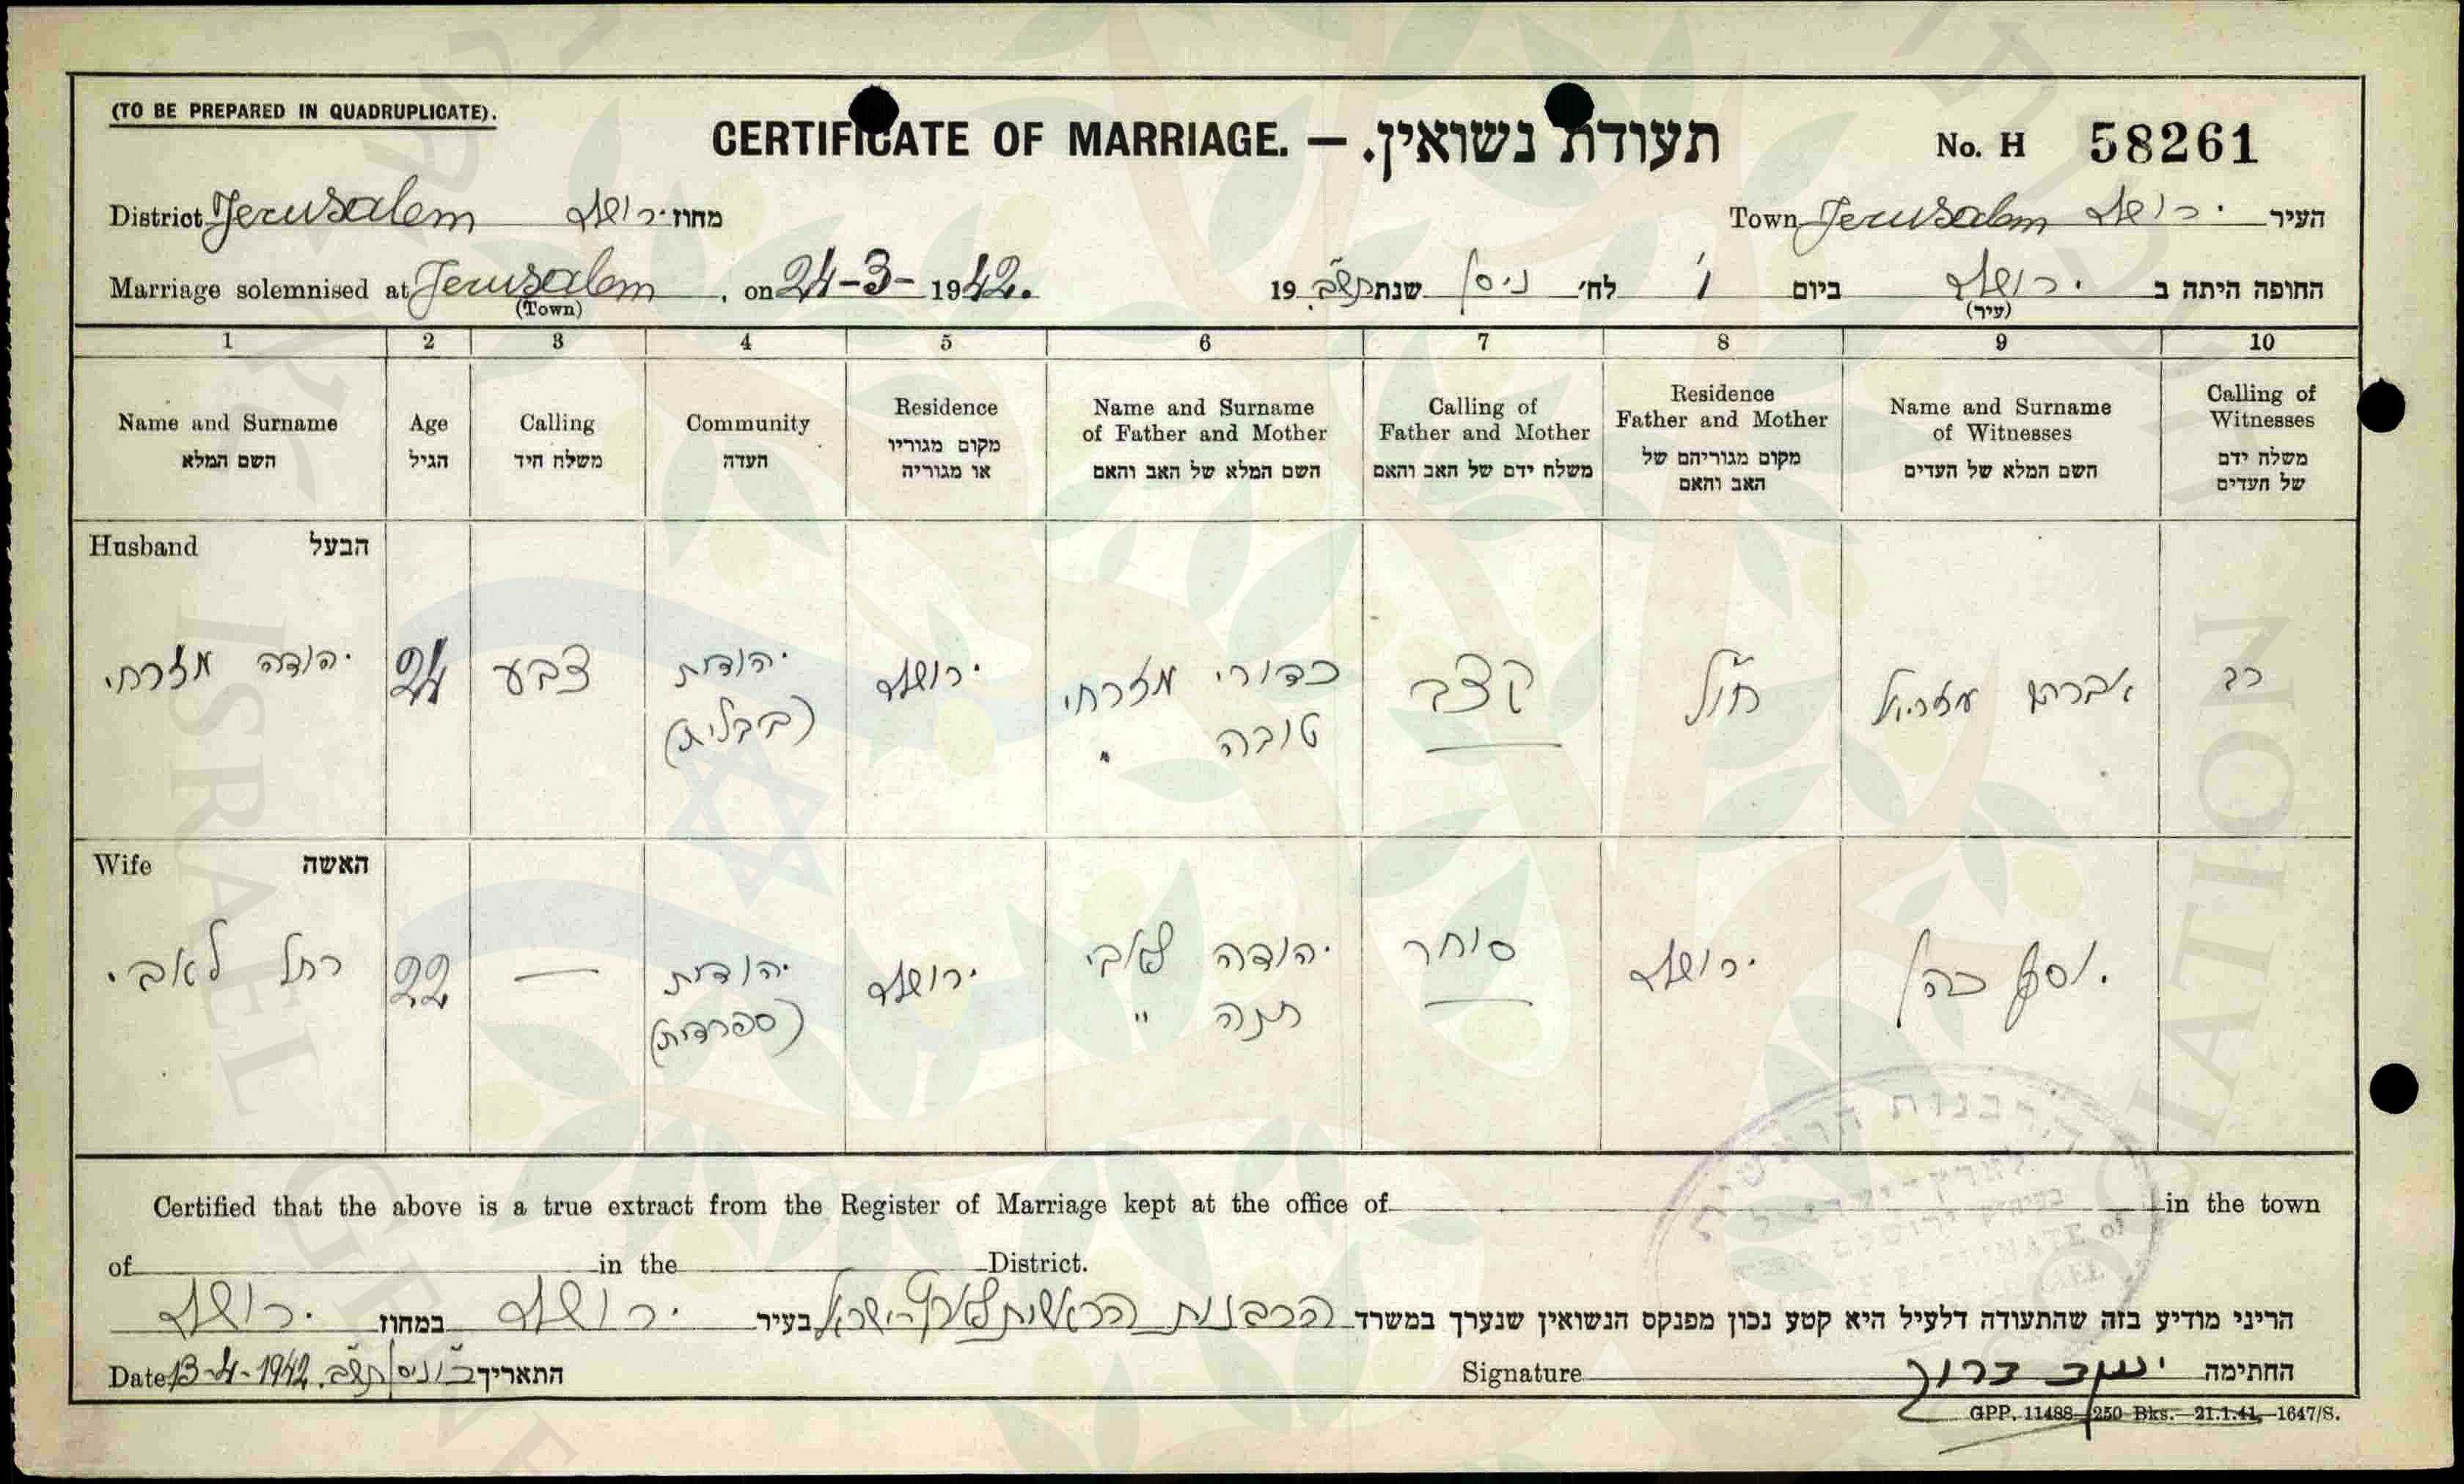 (TO BE PREPARED IN QUADRUPLICATE).
CERTIFICATE OF MARRIAGE. — תעודת נשואין.
No. H 58261
District Jerusalem ירושלם מחוז
Town Jerusalem ירושלם העיר
Marriage solemnised at Jerusalem, on 24-3-1942.
(Town)
החופה היתה ב ירושלם ביום ו' לח' ניסן שנת תש"ב 19
(עיר)
1 2 3 4 5 6 7 8 9 10
Name and Surname
השם המלא
Age
הגיל
Calling
משלח היד
Community
העדה
Residence
מקום מגוריו
או מגוריה
Name and Surname
of Father and Mother
השם המלא של האב והאם
Calling of
Father and Mother
משלח ידם של האב והאם
Residence
Father and Mother
מקום מגוריהם של
האב והאם
Name and Surname
of Witnesses
השם המלא של העדים
Calling of
Witnesses
משלח ידם
של העדים
Husband הבעל
יהודה מזרחי
24
צבע
יהודית
(בבלית)
ירושלם
כדורי מזרחי
טובה "
קצב
חו"ל
אברהם עזריאל
רב
Wife האשה
רחל לאבי
22
—
יהודית
(ספרדית)
ירושלם
יהודה לאבי
חנה "
סוחר
ירושלם
יוסף כהן
Certified that the above is a true extract from the Register of Marriage kept at the office of in the town
of in the District.
הריני מודיע בזה שהתעודה דלעיל היא קטע נכון מפנקס הנשואין שנערך במשרד הרבנות הראשית לארץ-ישראל בעיר ירושלם במחוז ירושלם
Date 13-4-1942. כ"ו ניסן תש"ב התאריך
Signature יעקב ברוך החתימה
GPP. 11488—250 Bks.—21.1.41.—1647/S.
הרבנות הראשית
לארץ-ישראל
ISRAEL GENE